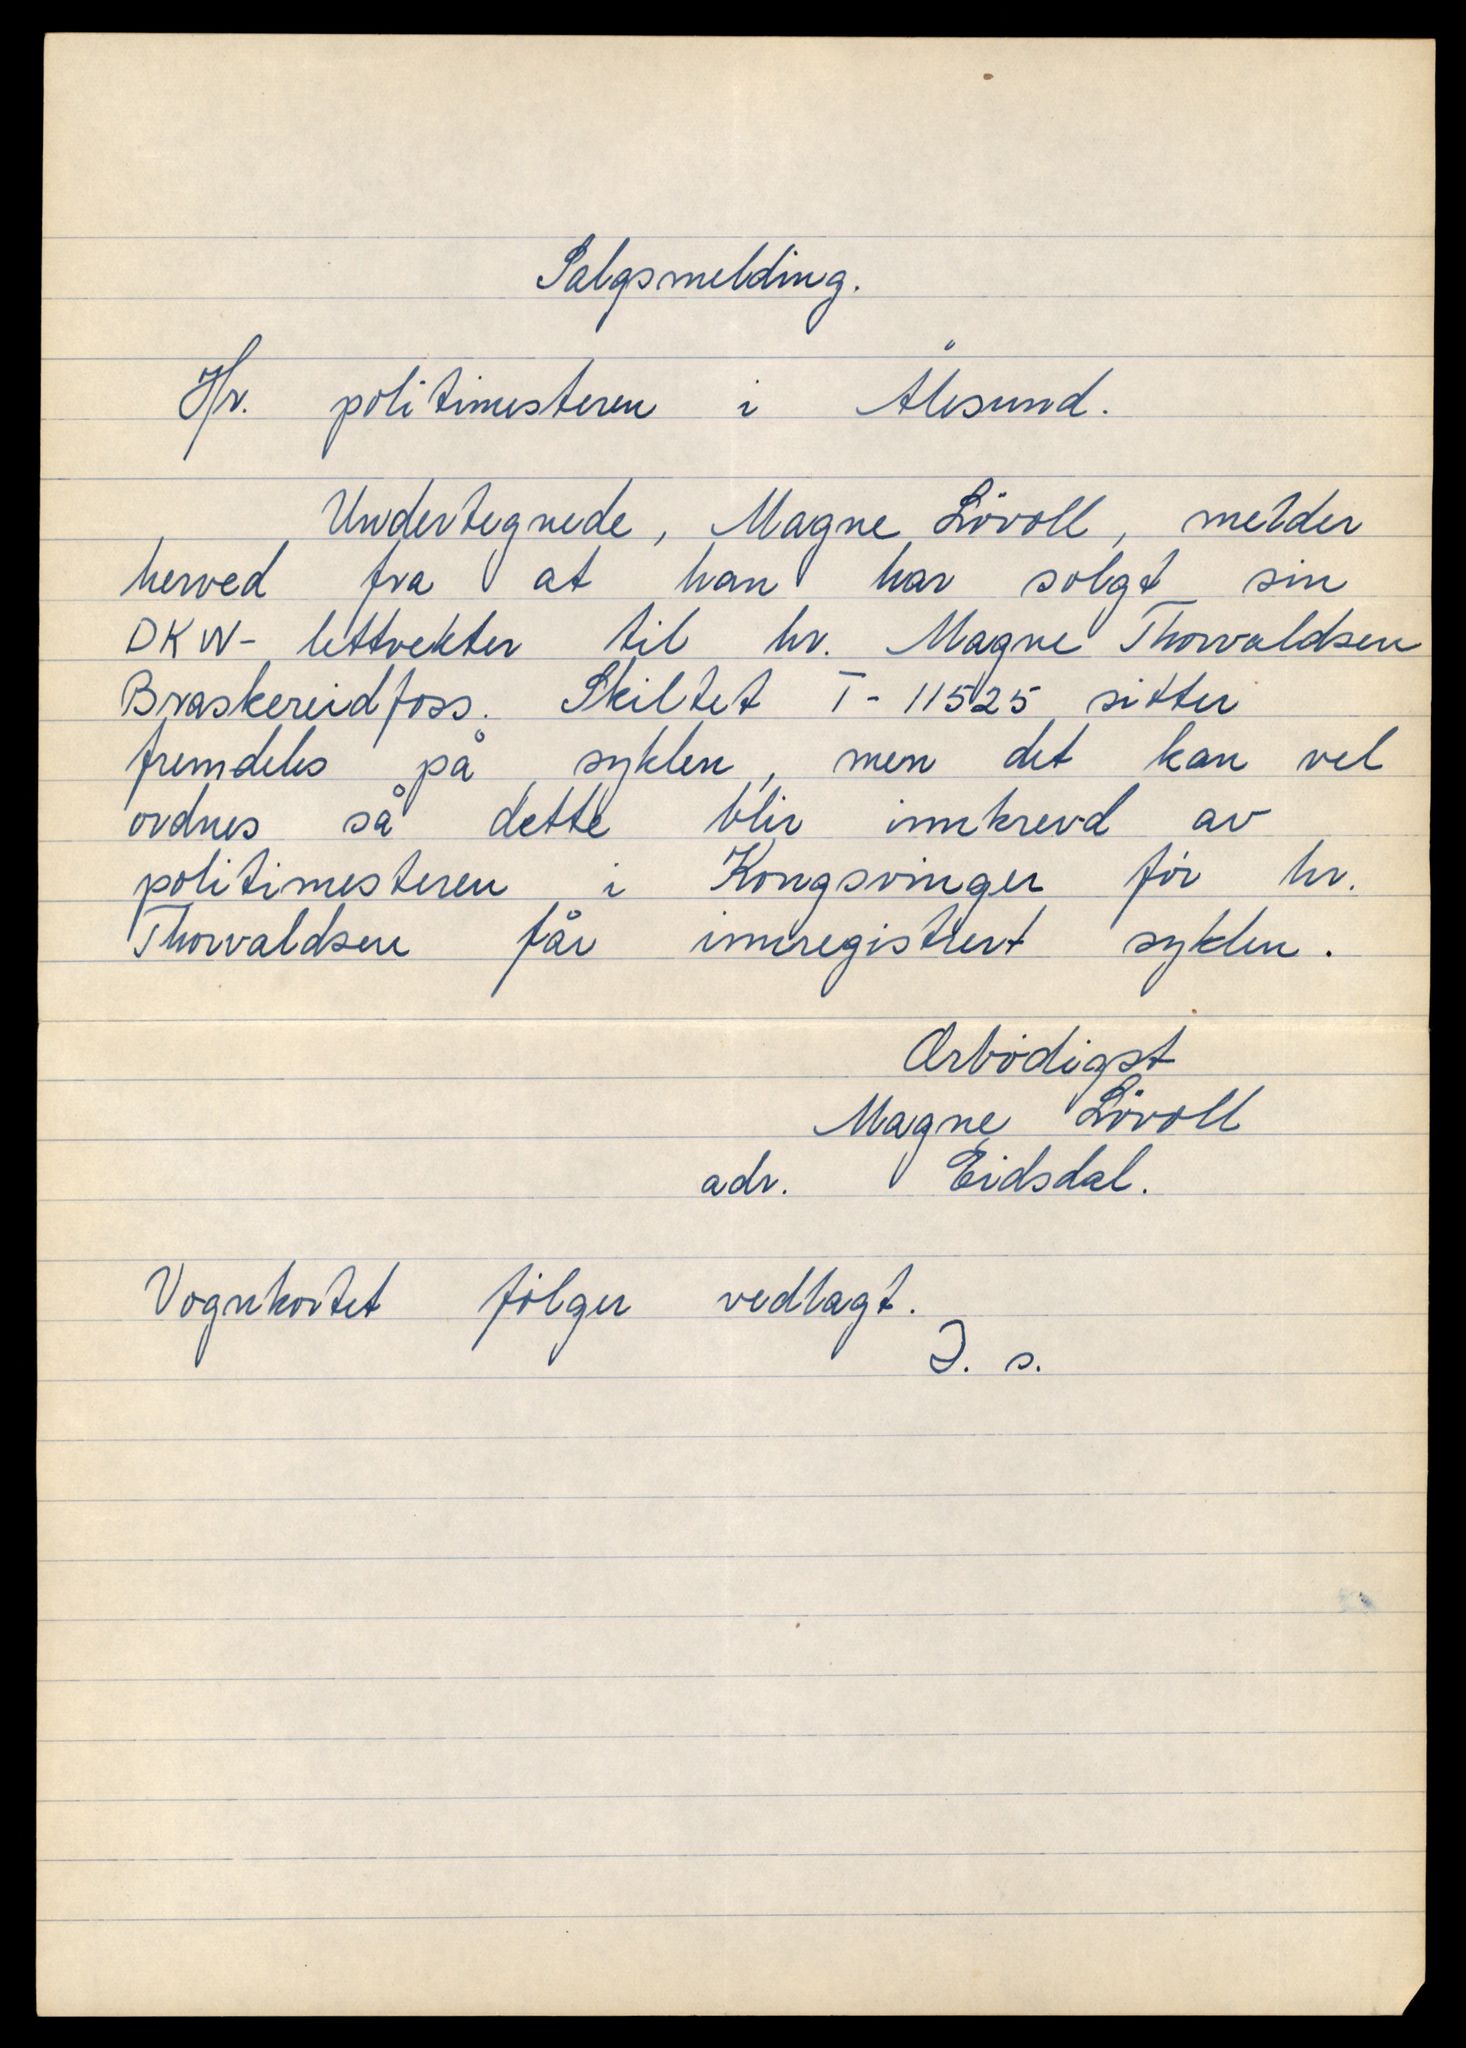 Salgsmelding.
Hr. politimesteren i Ålesund.
Undertegnede, Magne Lövoll, melder
herved fra at han har solgt sin
DKW- lettvekter til hr. Magne Thorvaldsen
Braskereidfoss. Skiltet T- 11525 sitter
fremdeles på syklen, men det kan vel
ordnes så dette blir innkrevd av
politimesteren i Kongsvinger för hr.
Thorvaldsen får innregistrert syklen.
Ærbödigst
Magne Lövoll
adr. Eidsdal.
Vognkortet fölger vedlagt.
D. s.